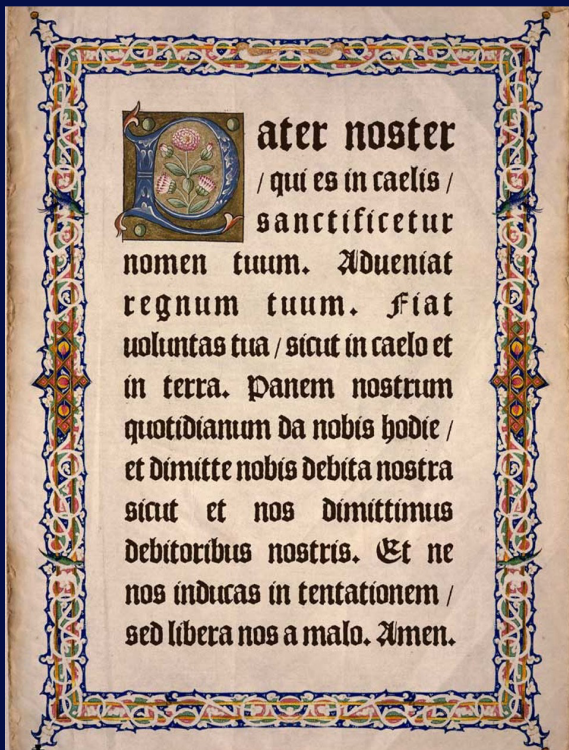 Pater noster
/ qui es in caelis /
sanctificetur
nomen tuum. Adueniat
regnum tuum. Fiat
uoluntas tua / sicut in caelo et
in terra. Panem nostrum
quotidianum da nobis hodie /
et dimitte nobis debita nostra
sicut et nos dimittimus
debitoribus nostris. Et ne
nos inducas in tentationem /
sed libera nos a malo. Amen.